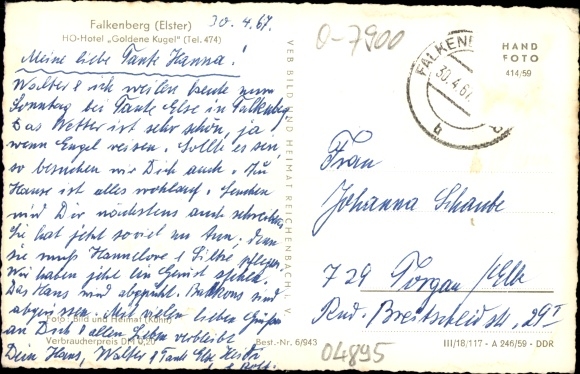 Falkenberg (Elster)
HO-Hotel „Goldene Kugel" (Tel. 474)
30.4.67.
Meine liebe Tante Hanna!
Walter & ich weilen heute zum
Sonntag bei Tante Else in Falkenbg.
Das Wetter ist sehr schön, ja
wenn Engel reisen. Sollte es sein,
so besuchen wir Dich auch. Zu
Hause ist alles wohlauf.
wird Dir nächstens auch schreiben.
Sie hat jetzt soviel zu tun, denn
sie muß Hannelore & Silke pflegen.
Wir haben jetzt ein Gerüst stehen.
Das Haus wird abgeputzt. Balkons sind
abgerissen. Mit vielen lieben Grüßen
an Dich & allen Lieben verbleibt
Dein Hans, Walter & Tante Else
Foto: Bild und Heimat (Kühn)
Verbraucherpreis DM 0,20
Best.-Nr. 6/943
VEB BILD UND HEIMAT REICHENBACH i. V.
0-7900
FALKENB
30.4.67.
b
HAND
FOTO
414/59
Frau
Johanna Schaube
729 Torgau/Elbe
Rud. Breitscheidstr. 29 I
04895
III/18/117 - A 246/59 - DDR